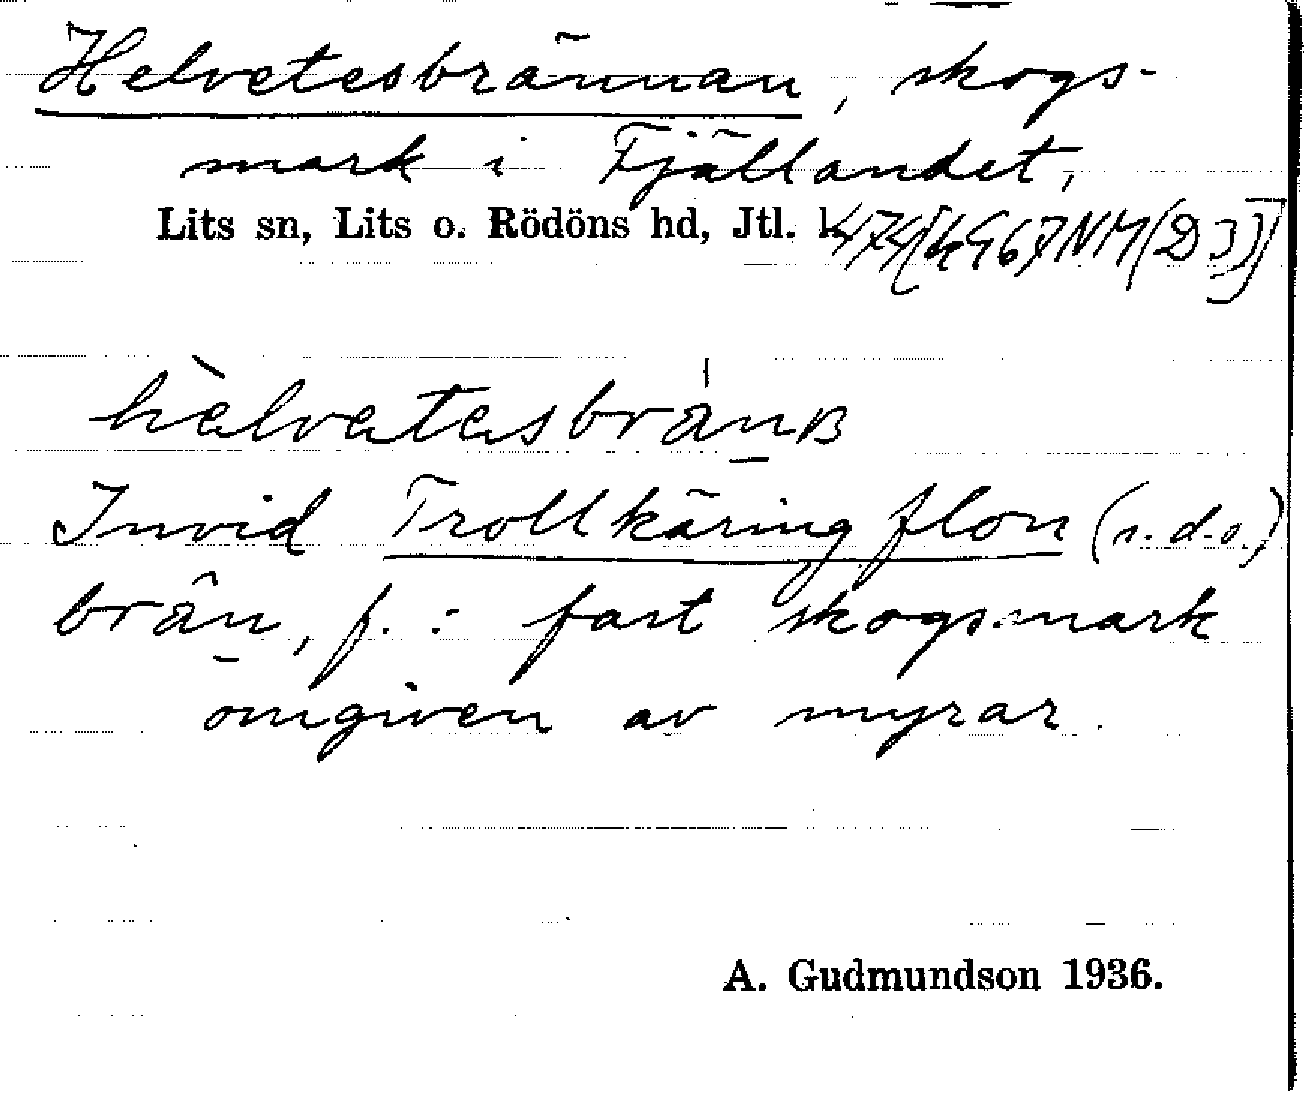 Helvetesbrännan, skogs-
mark i Fjällandet,
Lits sn, Lits o. Rödöns hd, Jtl. l.
hèlvetesbränn
Invid Trollkäringflon (s.d.o.)
brän, f. : fast skogsmark
omgiven av myrar.
A. Gudmundson 1936.